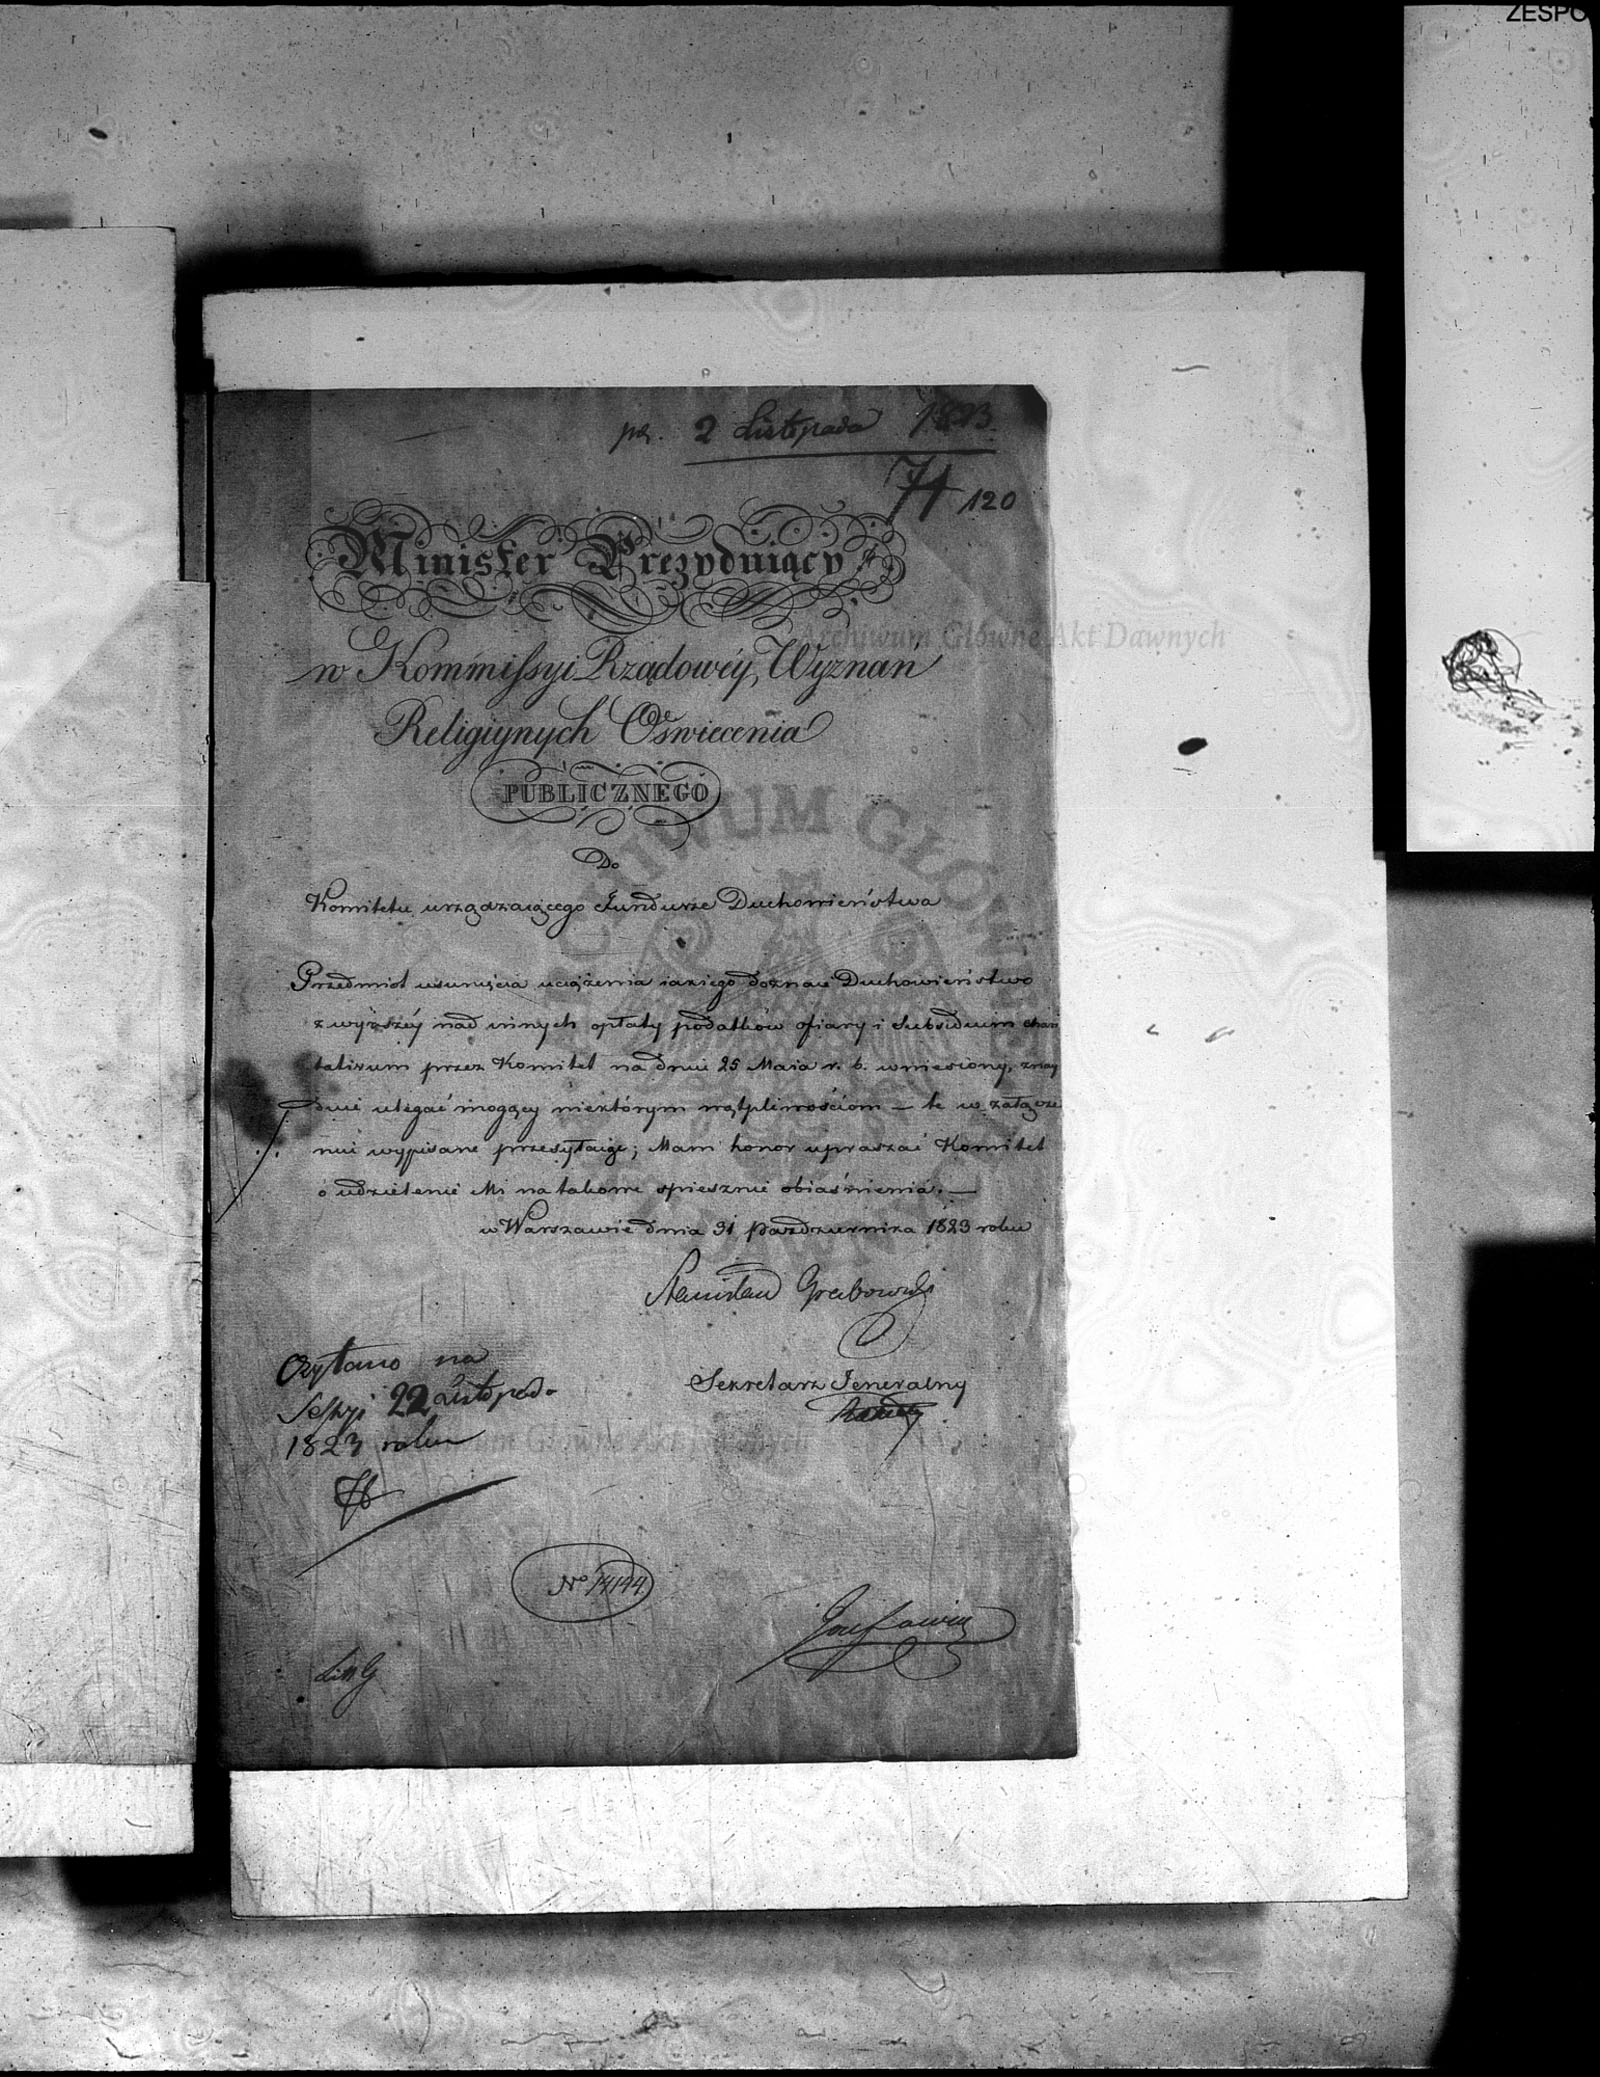 ZESPO
pr. 2 Listopada 1823
71 120
Minister Prezyduiący
w Kommissyi Rządowéy, Wyznań
Religiynych Oświecenia
PUBLICZNEGO
Do
Komitetu urządzaiącego Fundusze Duchowieństwa
Przedmiot usunięcia uciążenia iakiego doznaie Duchowieństwo
z wyższéy nad innych opłaty podatków ofiary i Subsidium chari
tativum przez Komitet na dniu 25 Maia r. b. wniesiony, znay
duie ulegać mogący niektórym wątpliwościom — te w załącze
niu wypisane przesyłaiąc; Mam honor upraszać Komitet
o udzielenie Mi na takowe spiesznie obiaśnienia. —
w Warszawie dnia 31 Października 1823 roku
Stanisław Grabowski
Czytano na
Sessyi 22 Listopada
1823 roku
Sekretarz Jeneralny
No 14144
Litt. G
Archiwum Główne Akt Dawnych